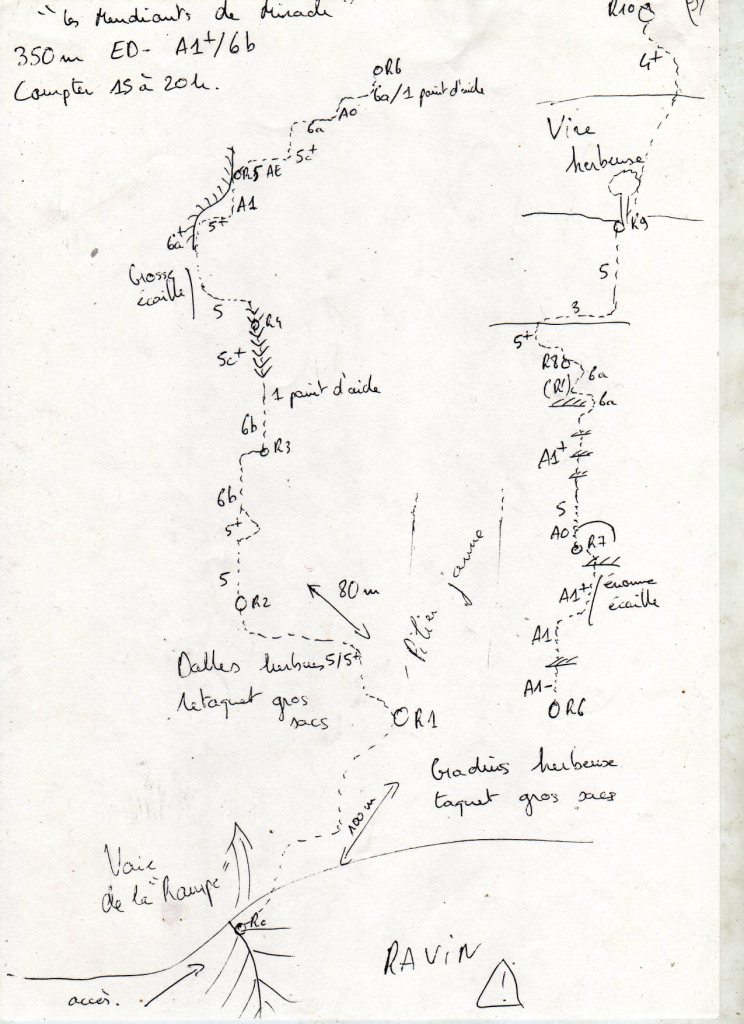 "Les Mendiants de Miracle"
350m ED- A1+/6b
Compter 15 à 20h.
R10
4+
Vire
herbeuse
R9
5
3
5+
R8
(R')
6a
6a
A1+
5
A0
R7
A1+
énorme
écaille
A1
A1-
R6
R6
6a/1 point d'aide
A0
6a
5c+
R5 AE
A1
5+
6a+
Grosse
écaille
5
R4
5c+
1 point d'aide
6b
R3
6b
5+
5
R2
80m
Pilier jaune
Dalles herbues 5/5+
retaquet gros
sacs
R1
Gradins herbeuse
taquet gros sacs
100m
Voie
de la "Rampe"
R0
accès.
RAVIN
!